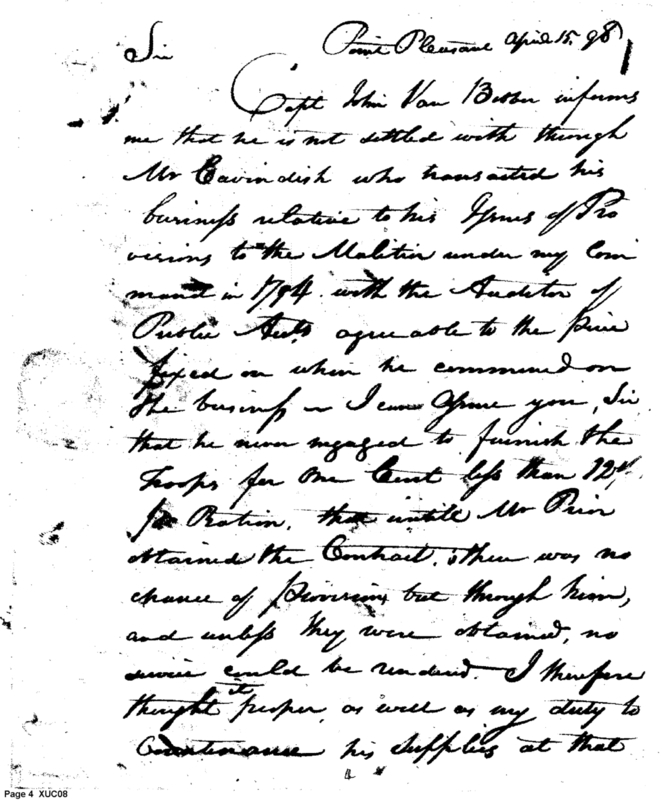 Point Pleasant April 15. 98
Sir
Capt John Van Bibber informs
me that he is not settled with through
Mr Cavindish who transacted his
business relative to his Issues of Pro
visions to the Malitia under my Com
mand in 1794. with the Auditor of
Public Acts. agreable to the price
fixed on when he commenced on
the business I can Assure you, Sir
that he never engaged to furnish the
Troops for One Cent less than 12d
pr Ration, that untill Mr Prior
obtained the Contract, there was no
chance of provisions but through him,
and unless they were obtained, no
service could be rendered. I therefore
thought it proper, as well as my duty to
Countenance his supplies at that
Page 4 XUC08